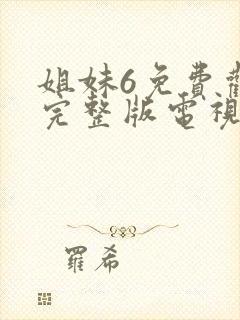 姐妹6免費
完整版電視
羅希